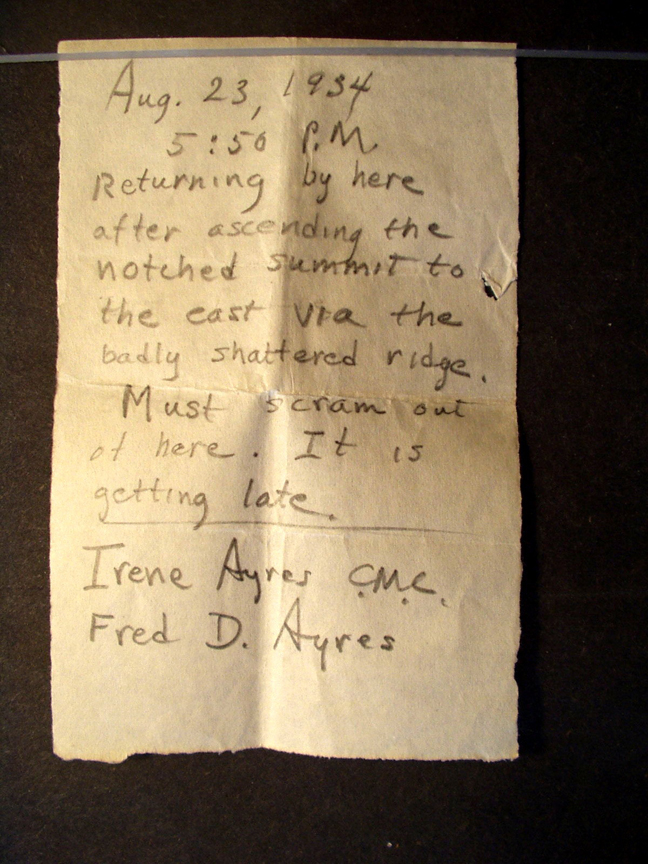 Aug. 23, 1934
5:50 P.M.
Returning by here
after ascending the
notched summit to
the east via the
badly shattered ridge.
Must scram out
of here. It is
getting late.
Irene Ayres C.M.C.
Fred D. Ayres